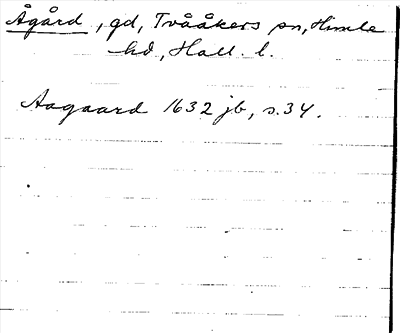 Ågård, gd, Tvååkers sn, Himle
hd, Hall. l.
Aagaard 1632 jb, s. 34.